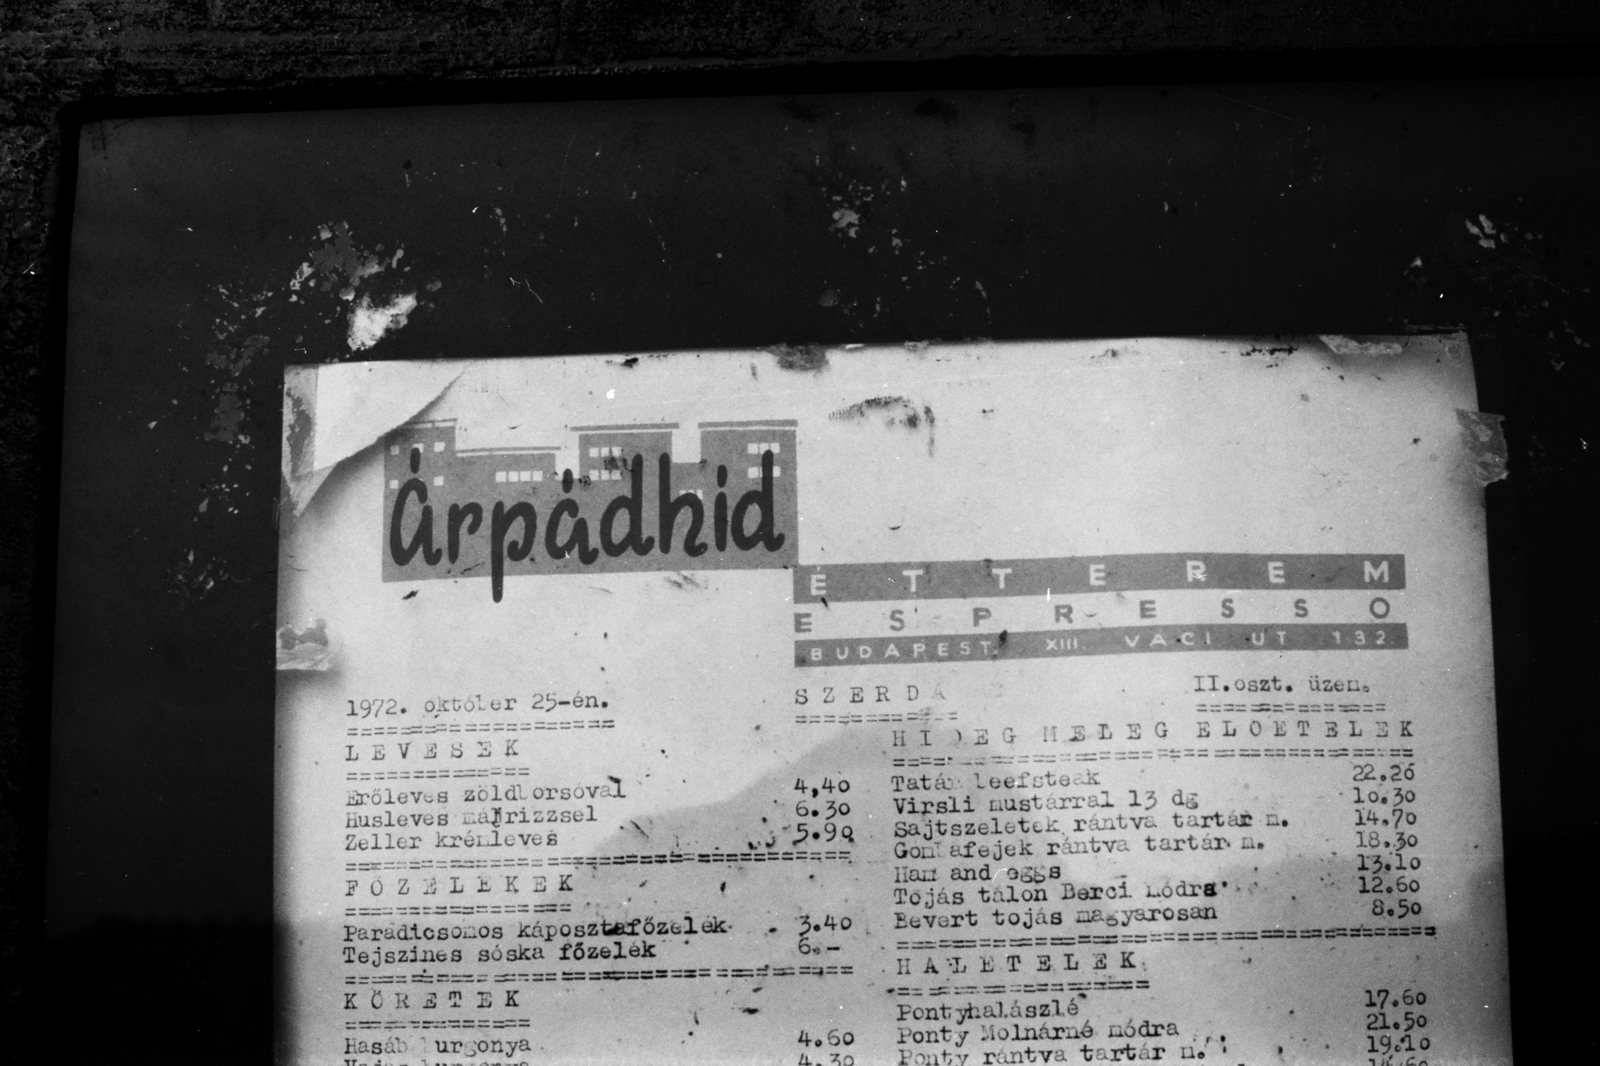 Árpádhíd
ÉTTEREM
ESPRESSO
BUDAPEST. XIII. VÁCI UT 132.
1972. október 25-én.
SZERDA
II.oszt. üzem.
LEVESEK
Erőleves zöldborsóval 4,40
Husleves májrizzsel 6.30
Zeller krémleves 5.90
FŐZELÉKEK
Paradicsomos káposztafőzelék 3.40
Tejszines sóska főzelék 6.-
KÖRETEK
Hasáb burgonya 4.60
4.30
HIDEG MELEG ELŐÉTELEK
Tatár beefsteak 22.20
Virsli mustárral 13 dg 10.30
Sajtszeletek rántva tartár m. 14.70
Gombafejek rántva tartár m. 18.30
Ham and eggs 13.10
Tojás tálon Berci módra 12.60
Bevert tojás magyarosan 8.50
HALÉTELEK
Pontyhalászlé 17.60
Ponty Molnárné módra 21.50
Ponty rántva tartár m. 19.10